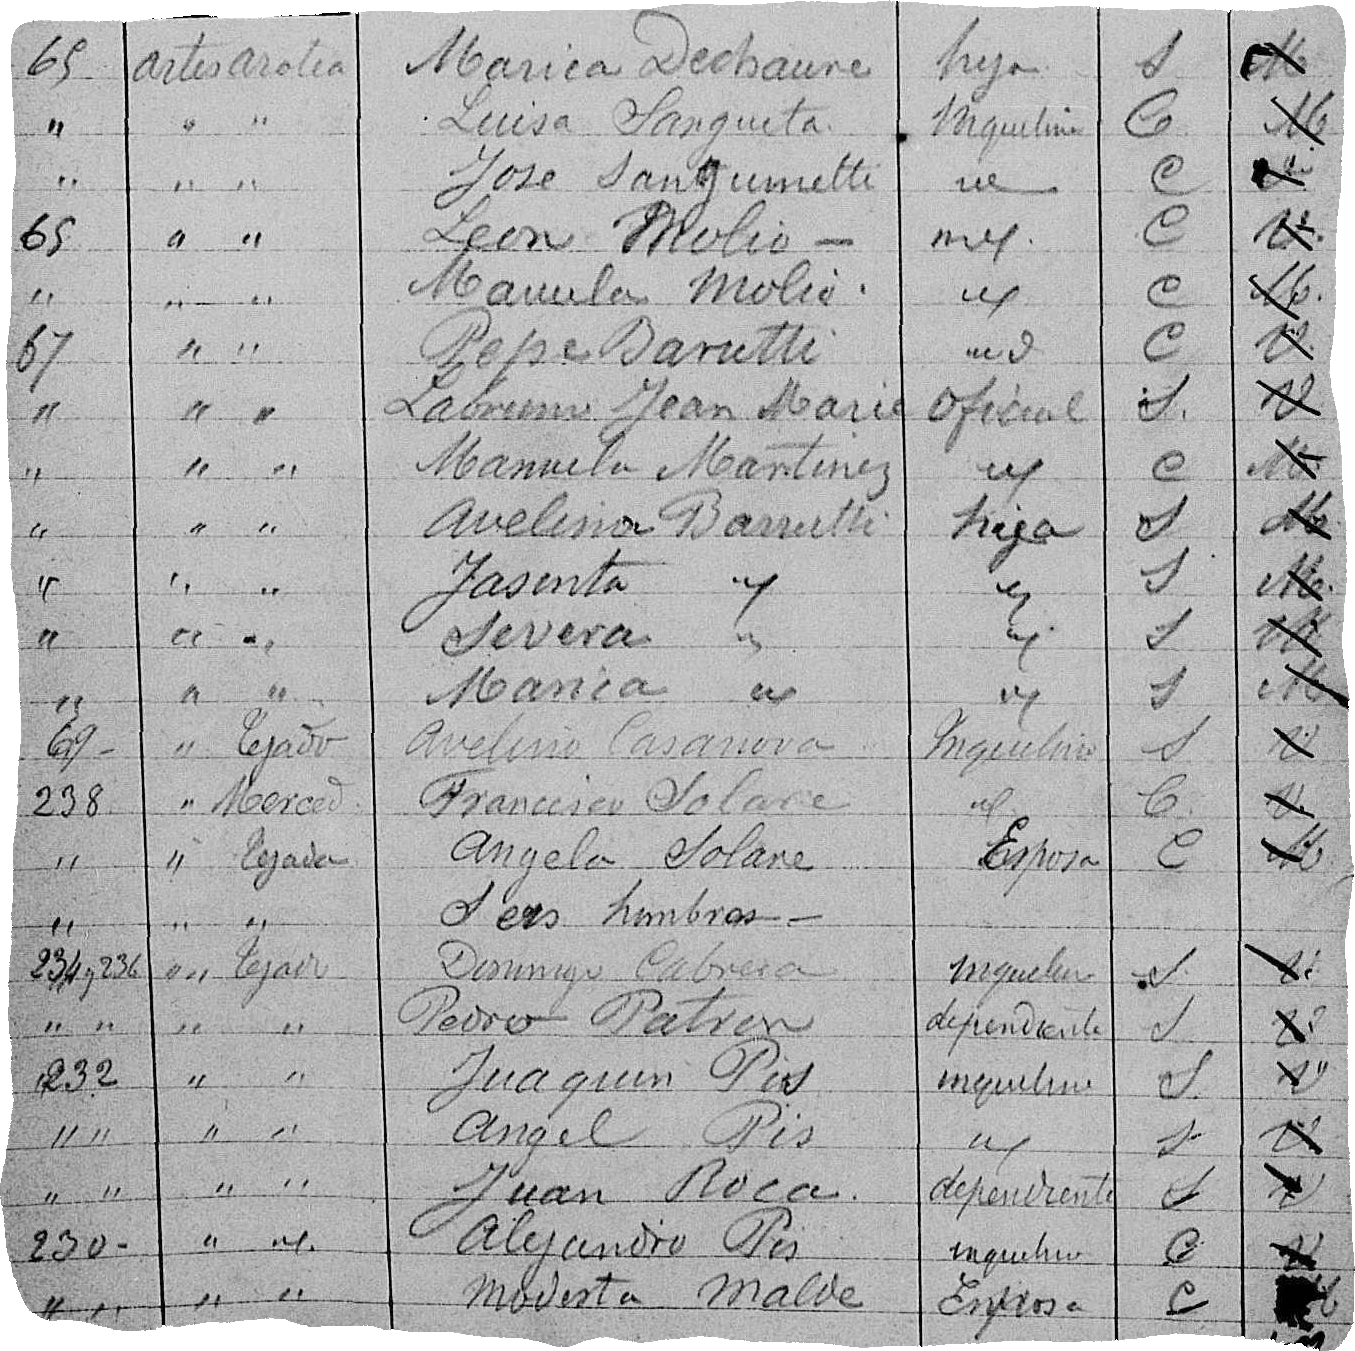 65 Artes arotea Marica Dechaure hija S M
" " " Luisa Sangueta. Inquilino C M
" " " Jose Sanguinetti C V
65 " " Leon Molio — C V
" " " Manuela Molio. C M.
67 " " Pepe Barutti C V
" " " Labrumo Jean Marie Oficial S. V
" " " Manuela Martinez " C M
" " " Avelina Barrutti hija S M
" " " Jasenta " " S M.
" " " Severa " " S M
" " " Marica " " S M
69- " Tejado Avelino Casanova Inquilino S V
238 " Merced Francisco Solare " C. V.
" " Tejada Angela Solare Esposa C M
" " " Seis hombres —
234 y 236 " " Tejado Domingo Cabrera inquilino S V
" " " " Pedro Patron dependiente S V
232 " " Juaquin Pis inquilino S. V
" " " " Angel Pis " S V
" " " " Juan Roca. dependiente S V
230- " " Alejandro Pis inquilino C V
" " " " Modesta Malde Esposa C M